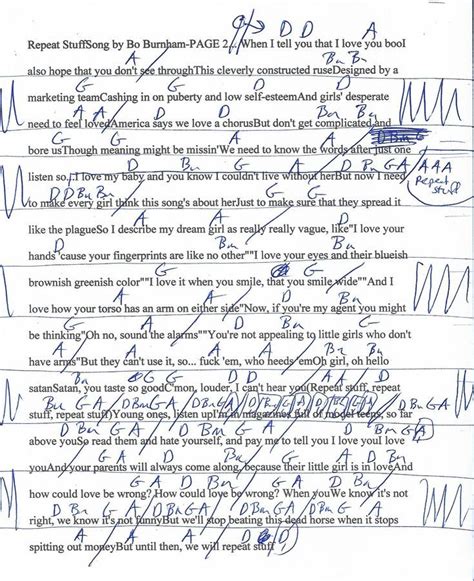 D D A
Repeat StuffSong by Bo Burnham-PAGE 2... When I tell you that I love you booI
A Bm Bm
also hope that you don't see throughThis cleverly constructed ruseDesigned by a
G G D D
marketing teamCashing in on puberty and low self-esteemAnd girls' desperate
A A Bm
need to feel lovedAmerica says we love a chorusBut don't get complicated and
G G D
bore usThough meaning might be missin'We need to know the words after just one
D Bm G A D Bm G A A A A
listen so..I love my baby and you know I couldn't live without herBut now I need
Repeat stuff
D D Bm G A D
to make every girl think this song's about herJust to make sure that they spread it
A A D
like the plagueSo I describe my dream girl as really really vague, like"I love your
Bm Bm G
hands 'cause your fingerprints are like no other""I love your eyes and their blueish
G G
brownish greenish color""I love it when you smile, that you smile wide""And I
A A D
love how your torso has an arm on either side"Now, if you're my agent you might
D A
be thinking"Oh no, sound the alarms""You're not appealing to little girls who don't
A A Bm Bm
have arms"But they can't use it, so... fuck 'em, who needs 'emOh girl, oh hello
G G D A
satanSatan, you taste so goodC'mon, louder, I can't hear you(Repeat stuff, repeat
Bm G A D Bm G A
stuff, repeat stuff)Young ones, listen upI'm in magazines full of model teens, so far
D Bm G A
above youSo read them and hate yourself, and pay me to tell you I love youI love
G A D Bm G A D
youAnd your parents will always come along, because their little girl is in loveAnd
G A D Bm G A
how could love be wrong? How could love be wrong? When youWe know it's not
D Bm G A D Bm G A D Bm G A
right, we know it's not funnyBut we'll stop beating this dead horse when it stops
A A A D
spitting out moneyBut until then, we will repeat stuff